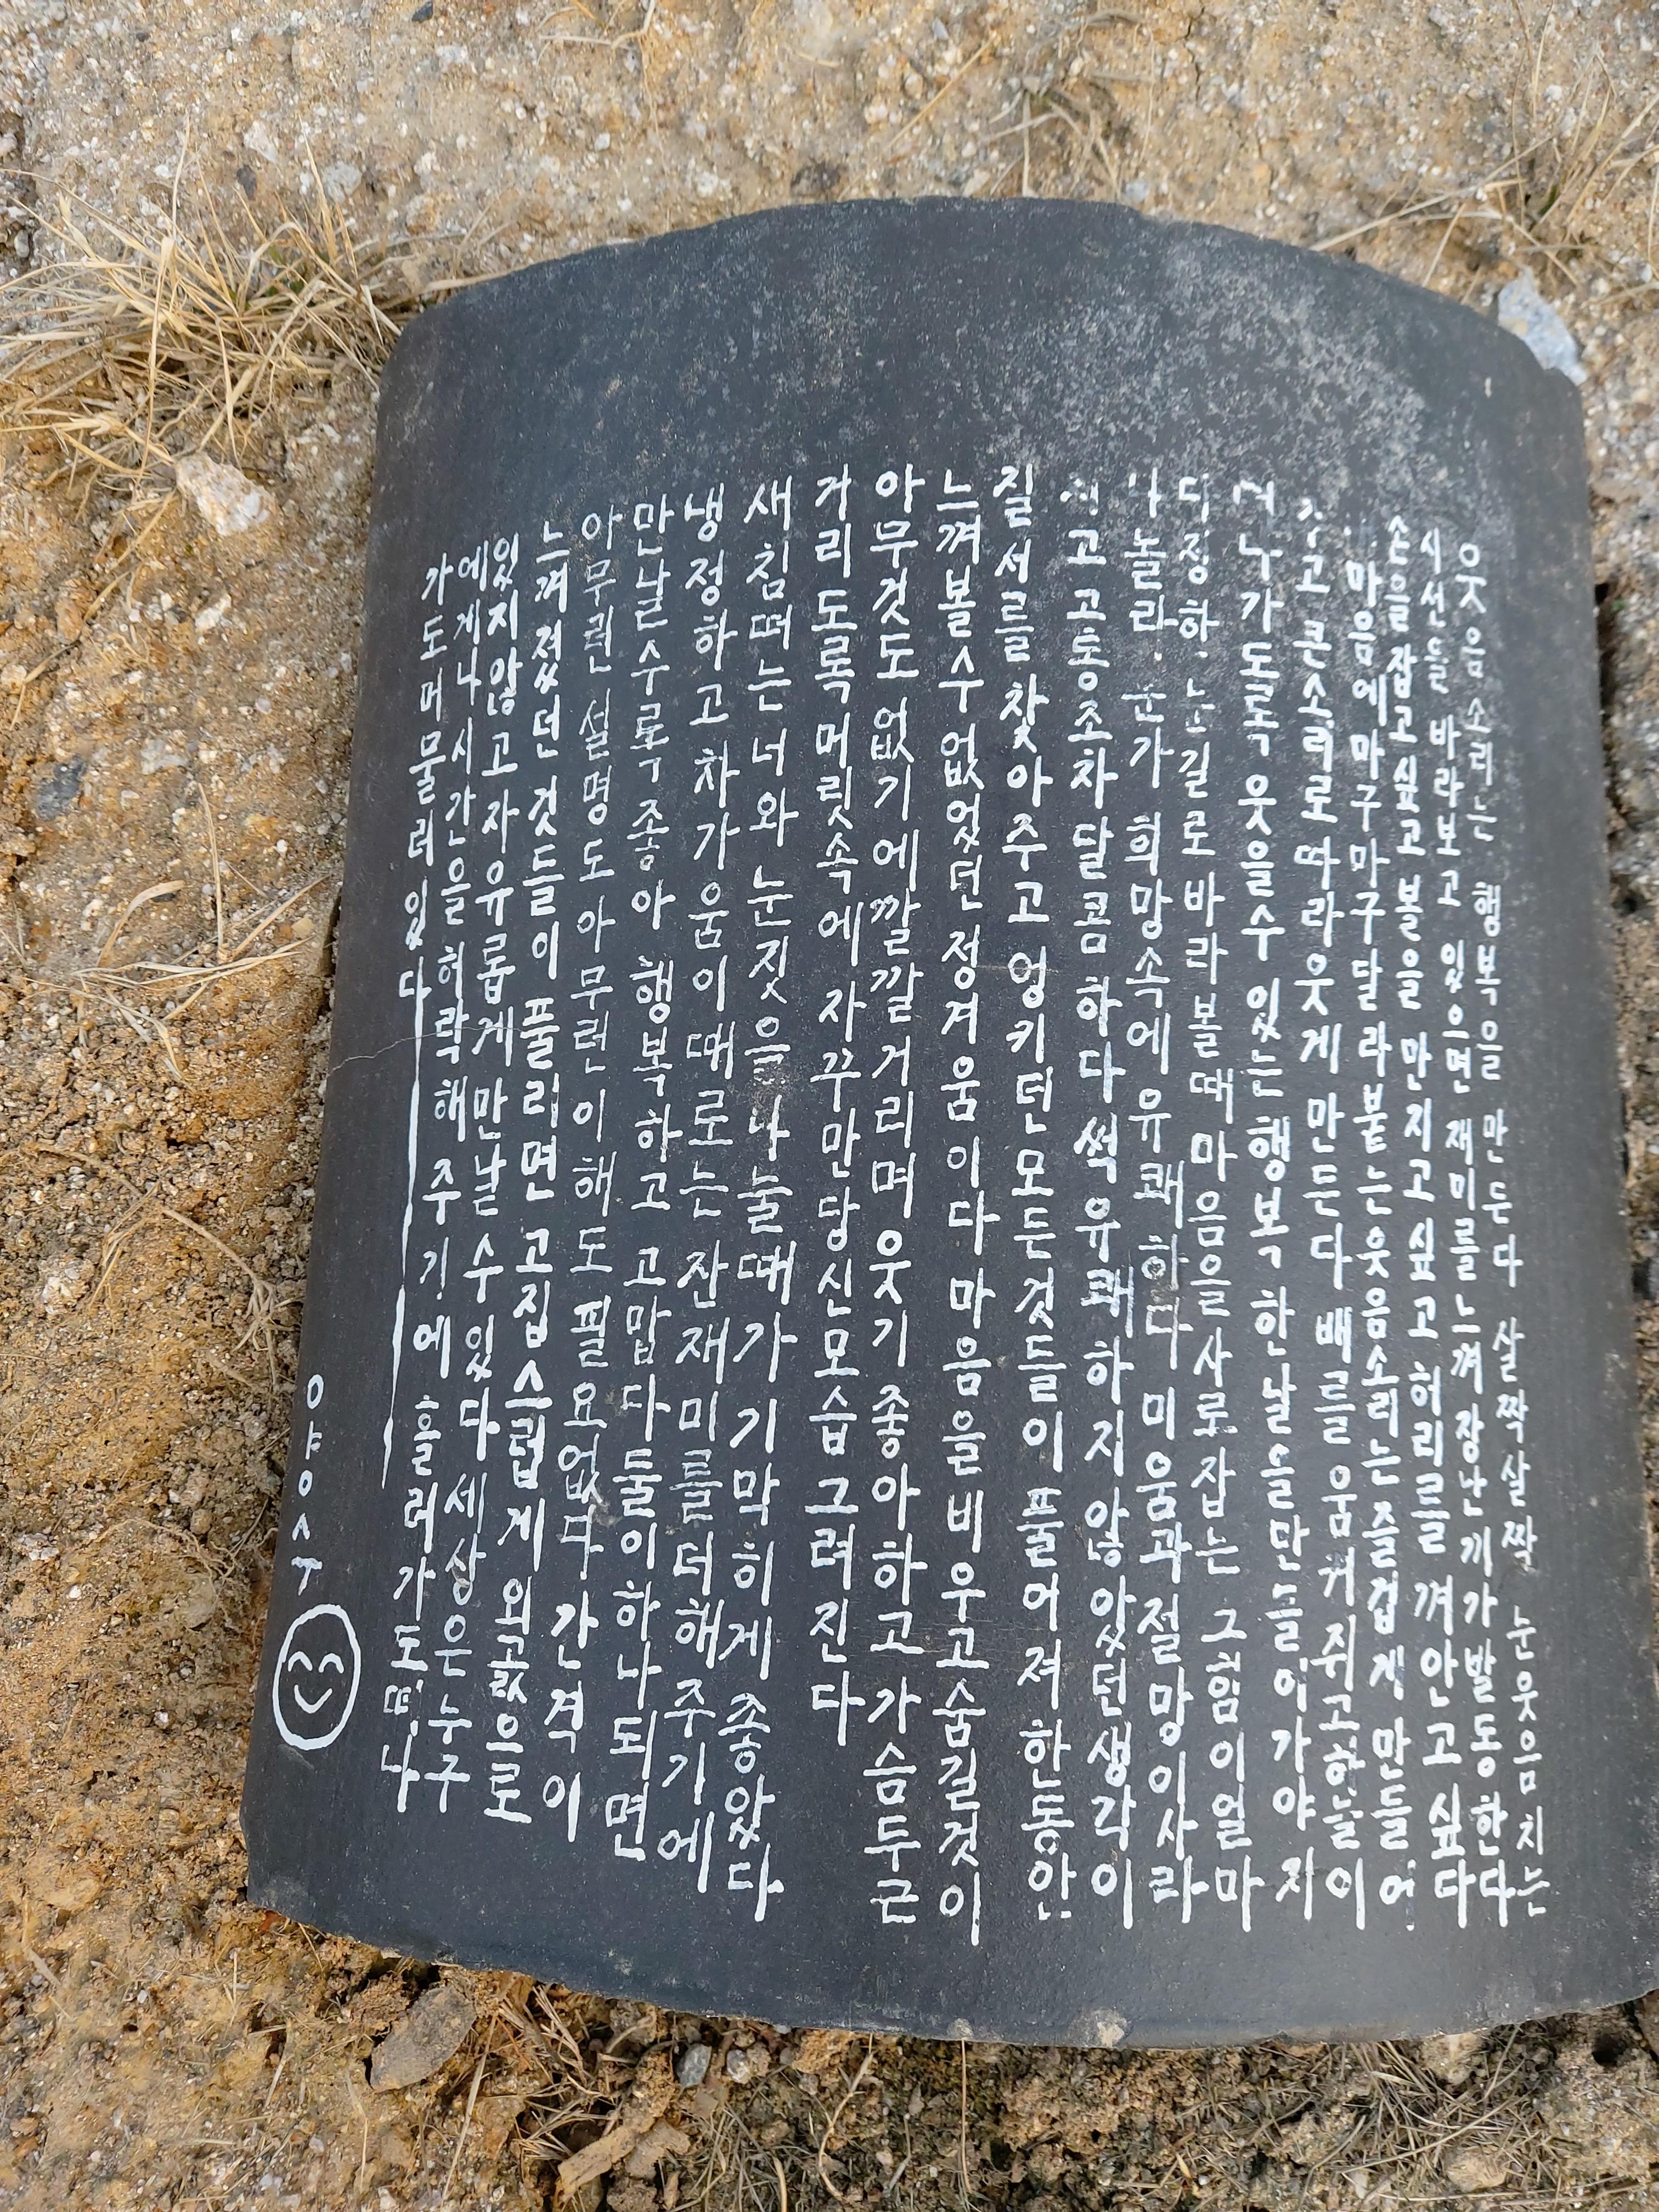 웃음소리는 행복을 만든다 살짝살짝 눈웃음치는
시선을 바라보고 있으면 재미를느껴장난끼가발동한다
손을잡고싶고볼을 만지고싶고허리를 껴안고싶다
마음에마구마구달라붙는웃음소리는즐겁게 만들어
큰소리로따라웃게 만든다 배를 움켜쥐고하늘이
나가도록 웃을수 있는행복한날을만들이가야지
다정한 눈길로바라볼때마음을사로잡는 그힘이얼마
나놀라운가희망속에유쾌하다 미움과절망이사라
지고고통조차달콤하다썩유쾌하지않았던생각이
질서를찾아주고엉키던모든것들이 풀어져한동안
느껴볼수없었던정겨움이다마음을비우고숨길것이
아무것도 없기에깔깔거리며웃기좋아하고가슴두근
거리도록머릿속에자꾸만당신모습그려진다
새침떠는너와 눈짓을나눌때가기막히게좋았다
냉정하고차가움이때로는 잔재미를더해주기에
만날수록좋아 행복하고 고맙다둘이하나되면
아무런설명도아무런이해도필요없다 간격이
느껴졌던것들이풀리면 고집스럽게외곬으로
있지않고자유롭게만날수있다세상은누구
에게나시간을허락해주기에흘러가도떠나
가도머물러있다